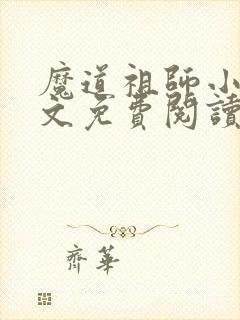 魔道祖師小
文免費閱讀
齊華